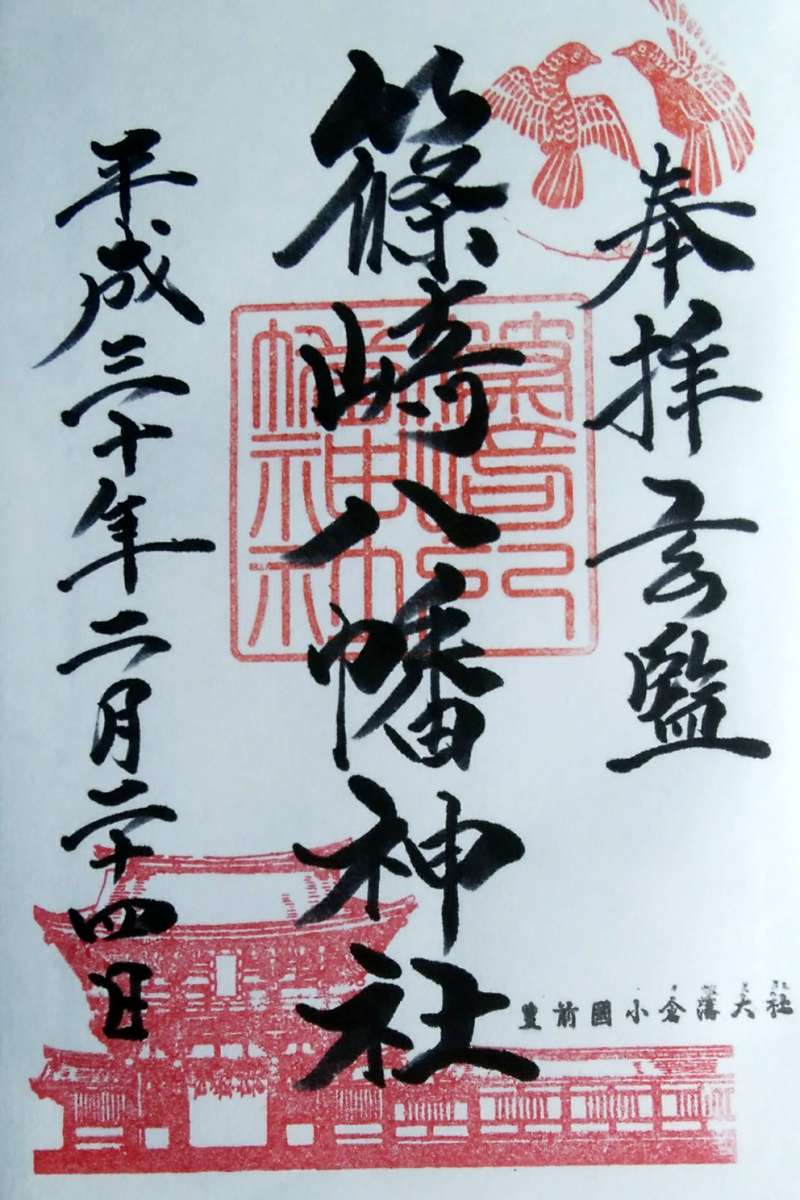 奉拝 監
篠崎八幡神社
平成三十年二月二十四日
豊前國小倉藩大社
篠崎八
幡神社